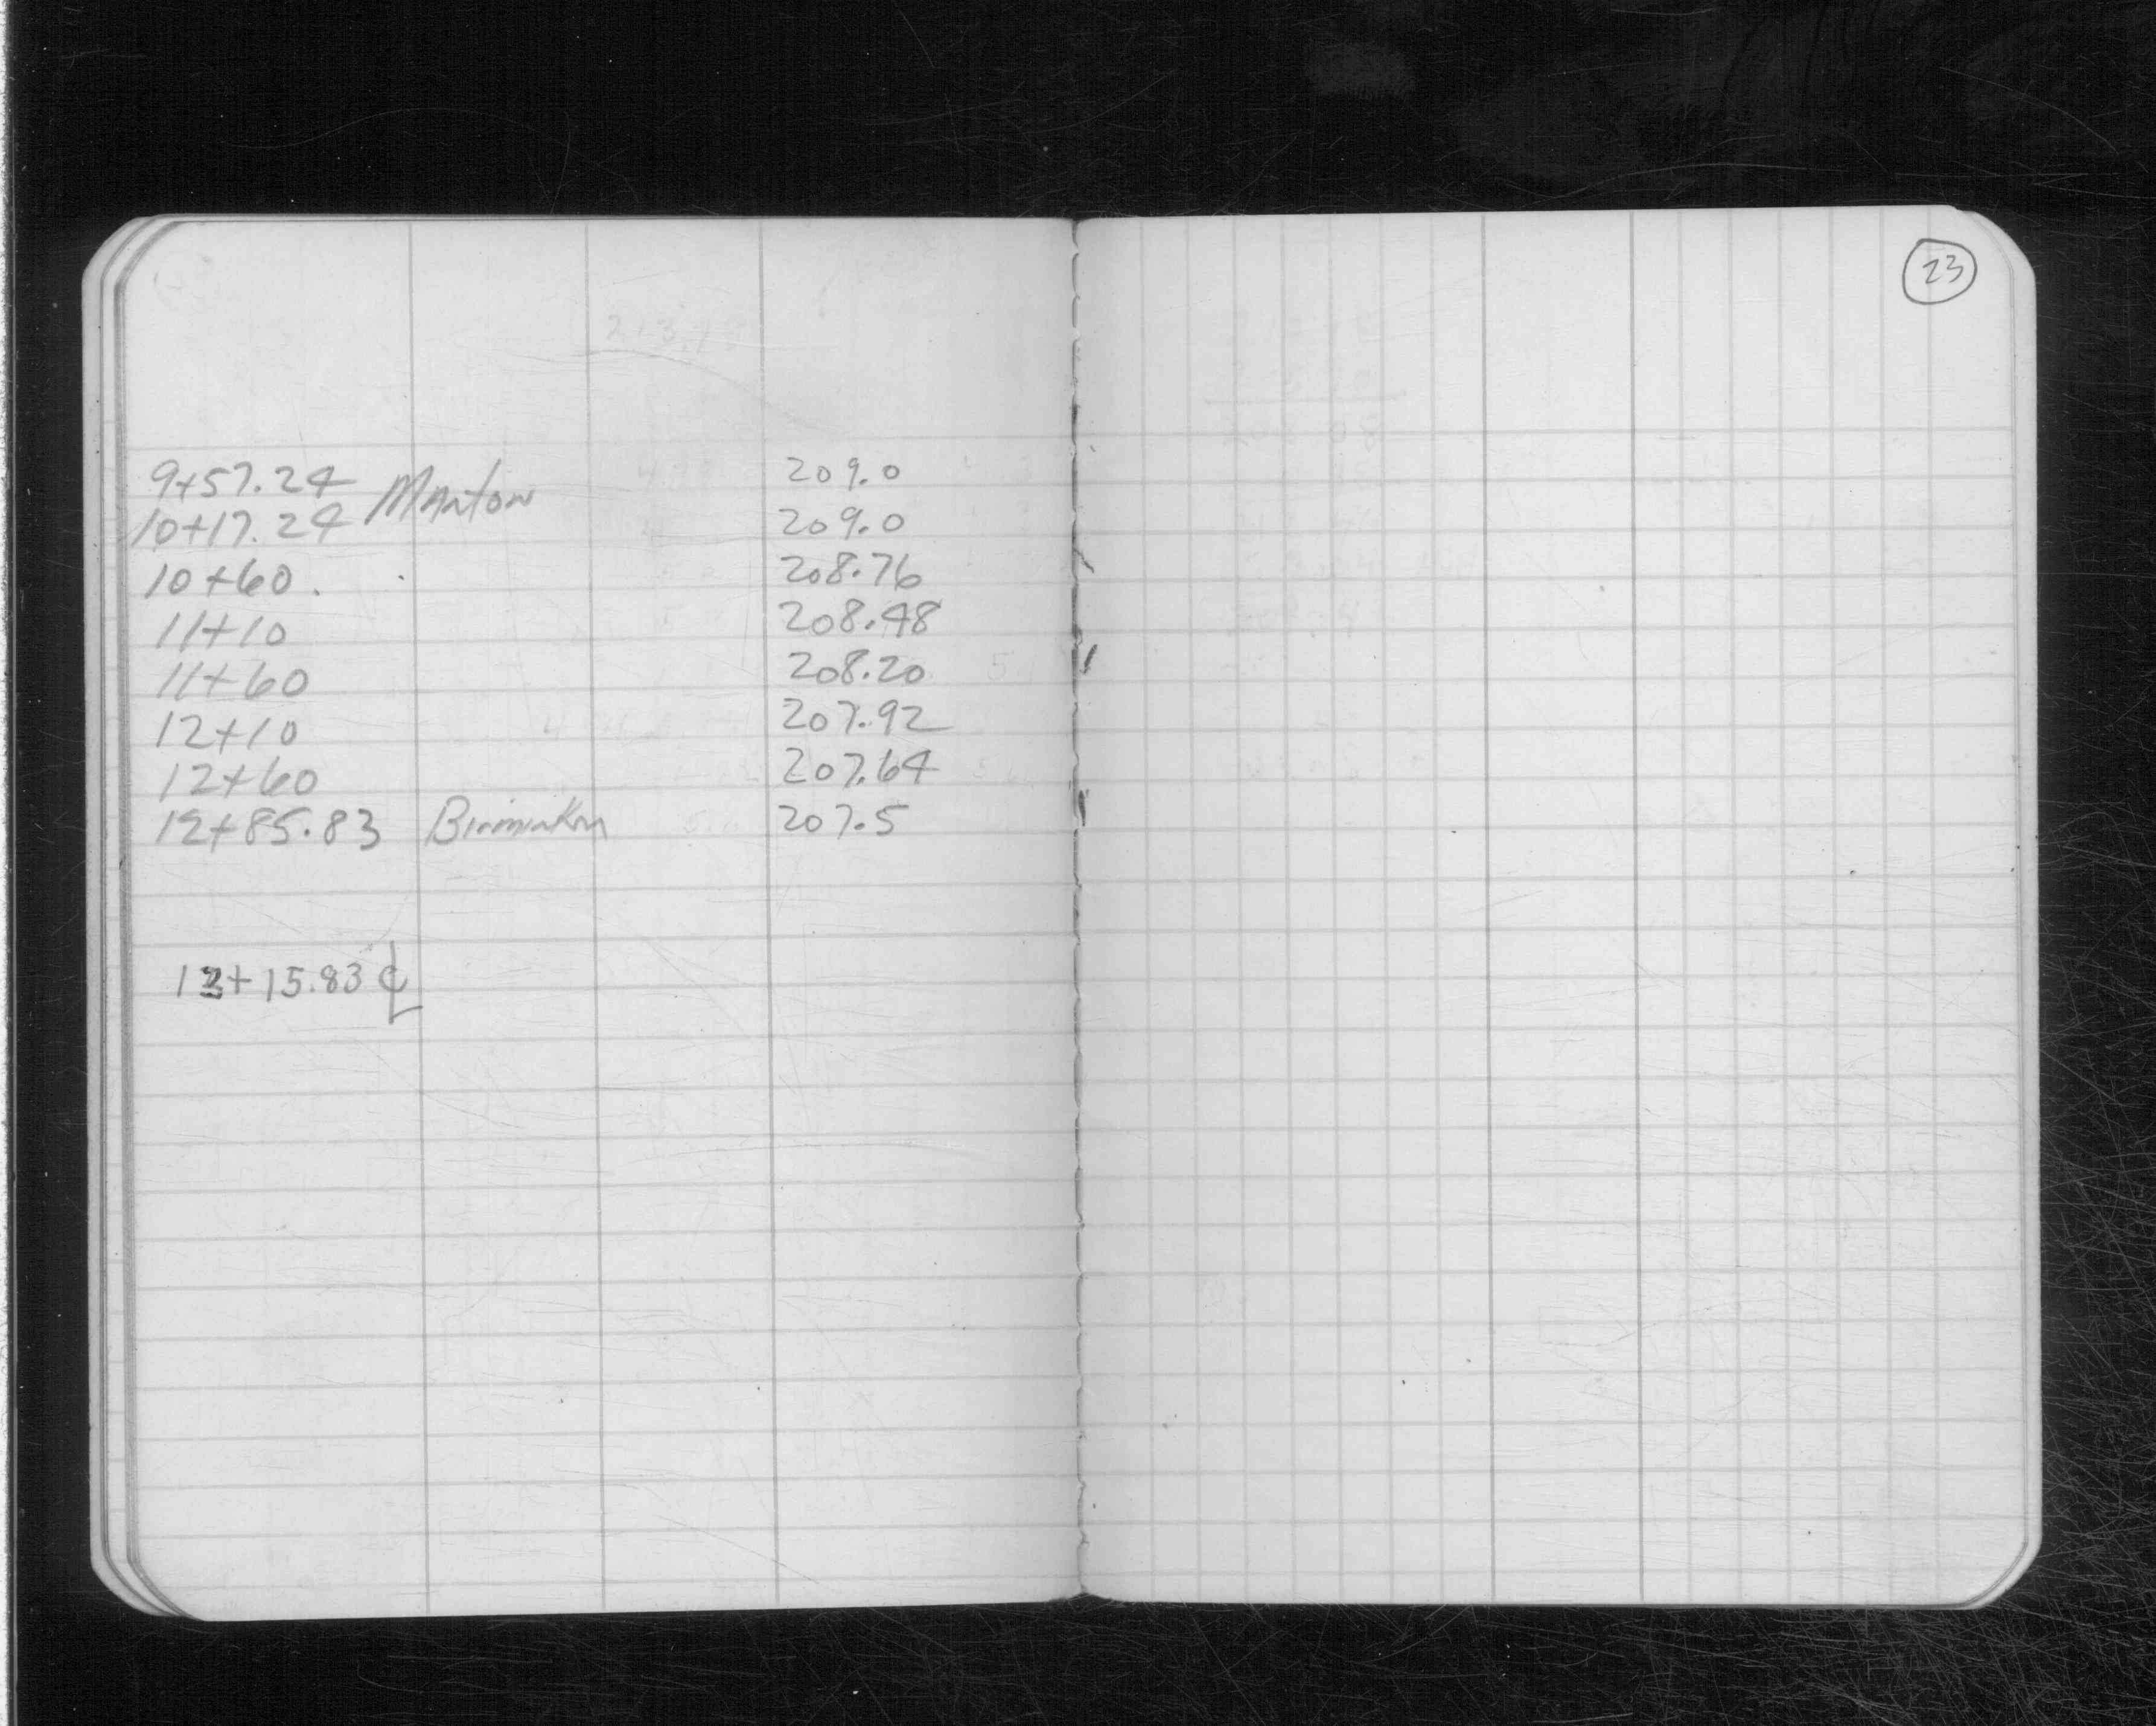 23
9+57.24 Manton 209.0
10+17.24 209.0
10+60. 208.76
11+10 208.48
11+60 208.20
12+10 207.92
12+60 207.64
12+85.83 207.5
13+15.83 ℄